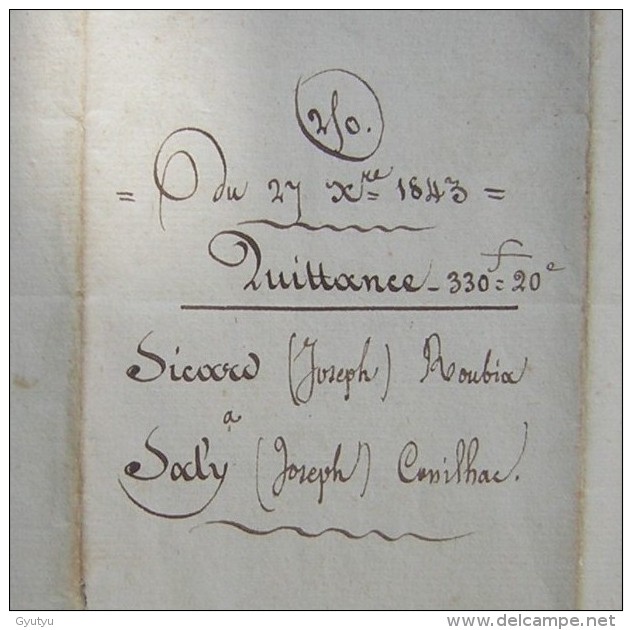 250.
= Du 27 Xre 1843 =
Quittance - 330f = 20c
Sicard (Joseph) Roubia
à
Saly (Joseph) Conilhac.
Gyutyu
www.delcampe.net